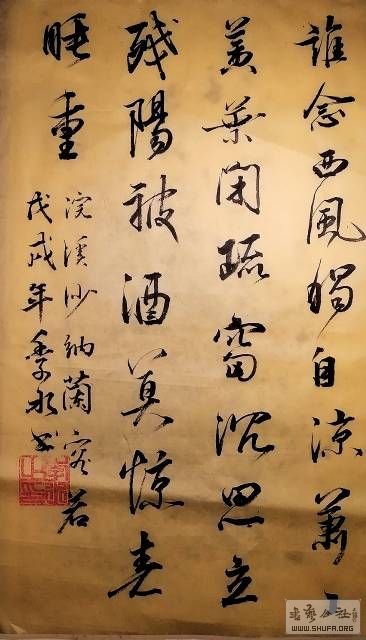 誰念西風獨自涼蕭〻
黄葉閉疏窗沉思立
殘陽被酒莫惊春
睡重
浣溪沙納蘭容若
戊戌年季水书
书艺公社
WWW.SHUFA.ORG